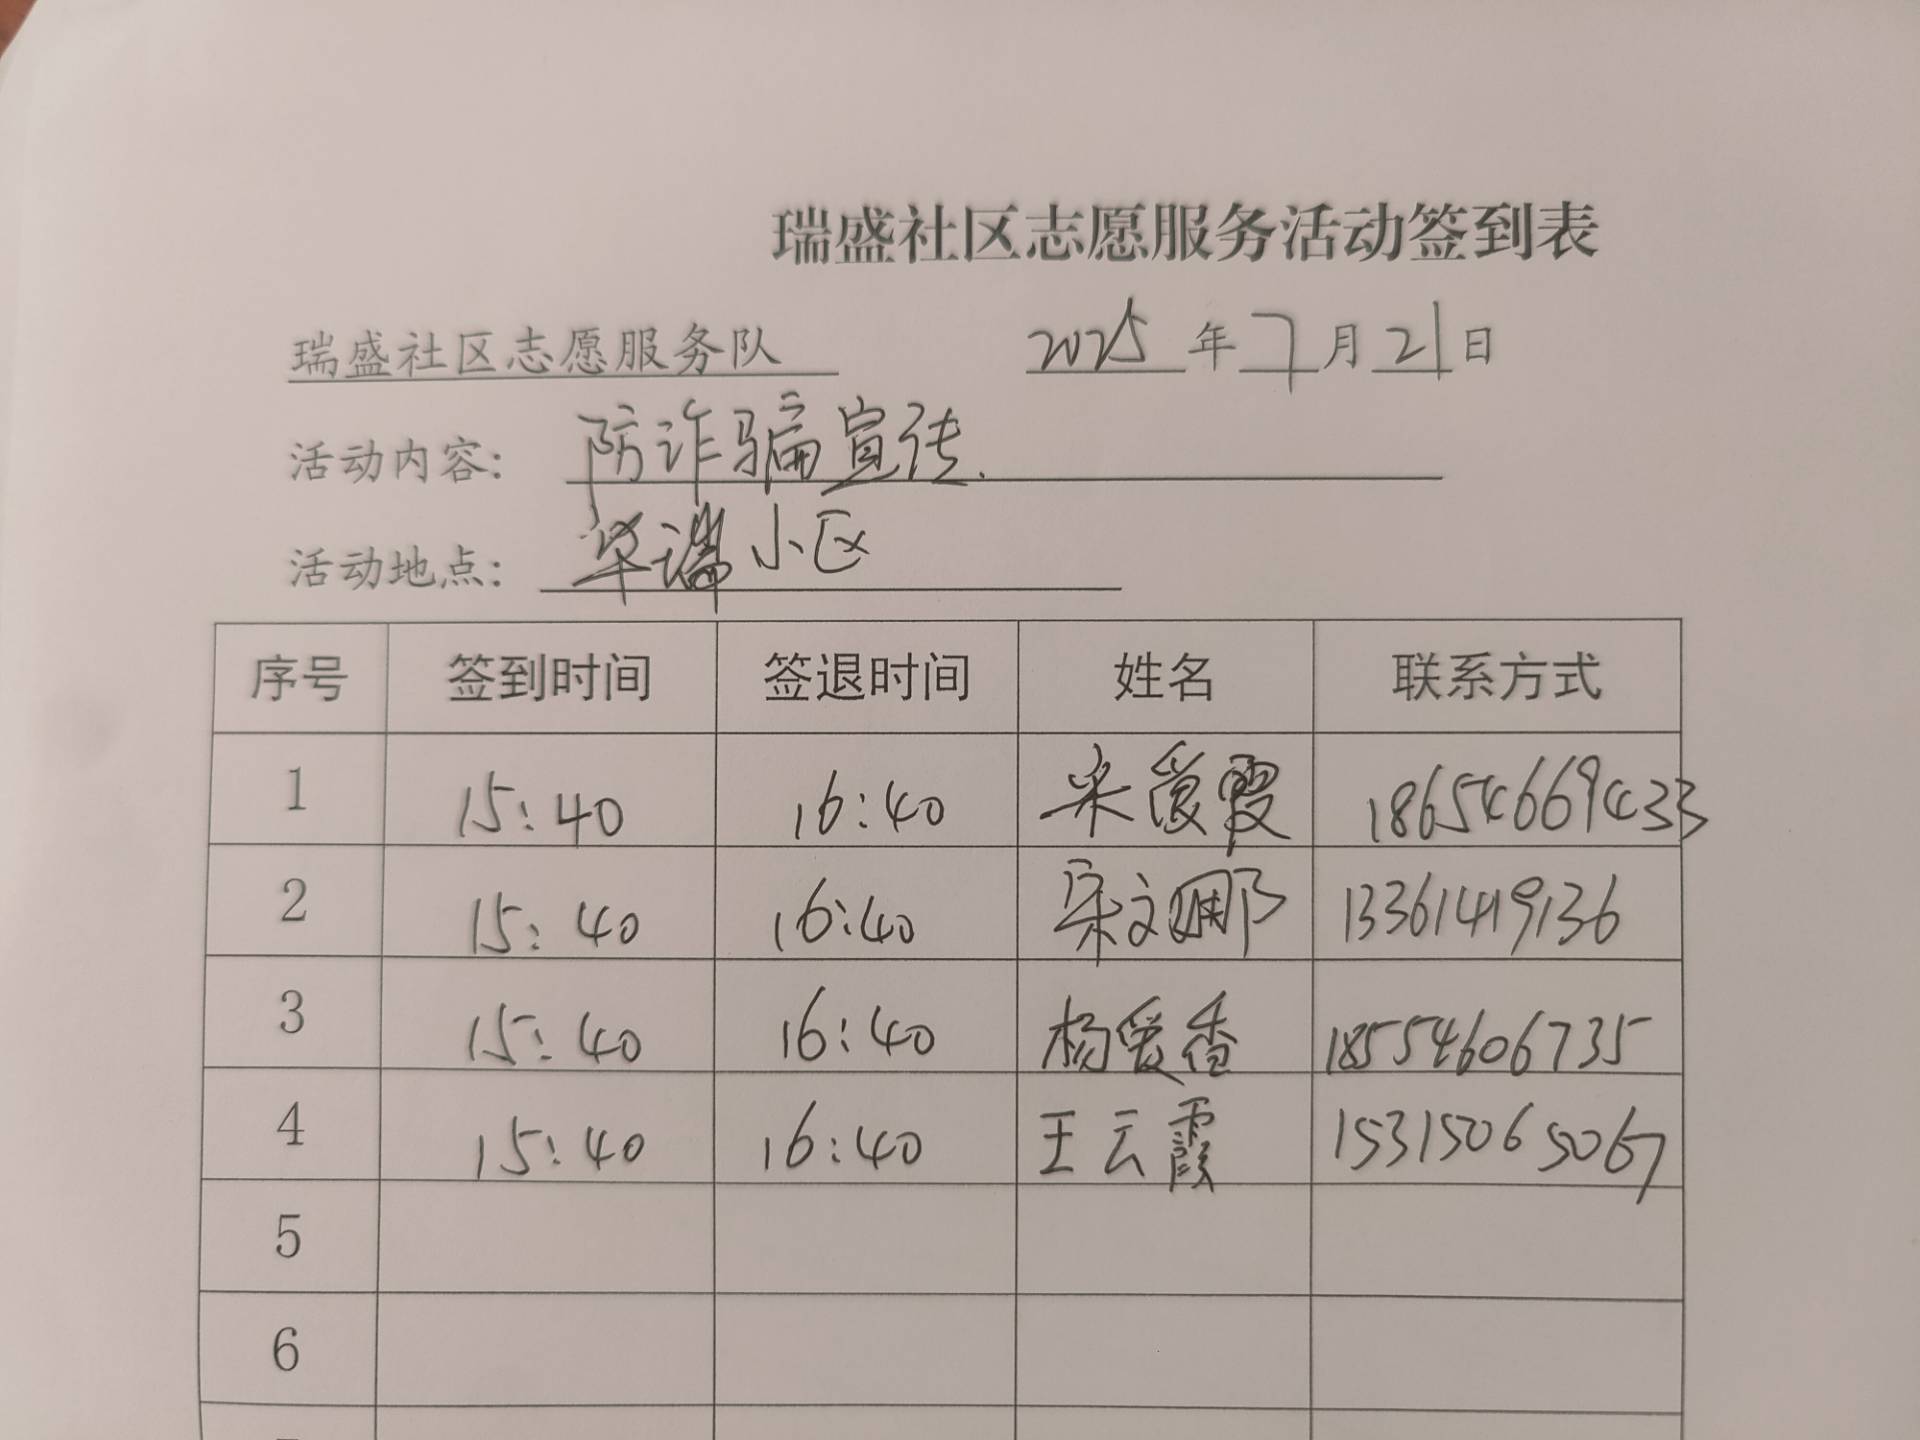 瑞盛社区志愿服务活动签到表
瑞盛社区志愿服务队 2025年7月21日
活动内容: 防诈骗宣传.
活动地点: 华瑞小区
序号 签到时间 签退时间 姓名 联系方式
1 15:40 16:40 宋爱霞 18654669433
2 15:40 16:40 宋文娜 13361419136
3 15:40 16:40 杨爱香 18554606735
4 15:40 16:40 王云霞 15315065067
5
6